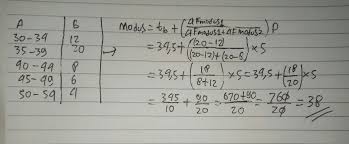 A B
30-34 12
35-39 20
40-44 8
45-49 6
50-54 4
Modus = tb + (ΔFmodus1 / ΔFmodus1 + ΔFmodus2) P
= 39,5 + ((20-12) / (20-12)+(20-8)) × 5
= 39,5 + (18 / 8+12) × 5 = 39,5 + (18 / 20) × 5
= 395/10 + 90/20 = 670+90/20 = 760/20 = 38